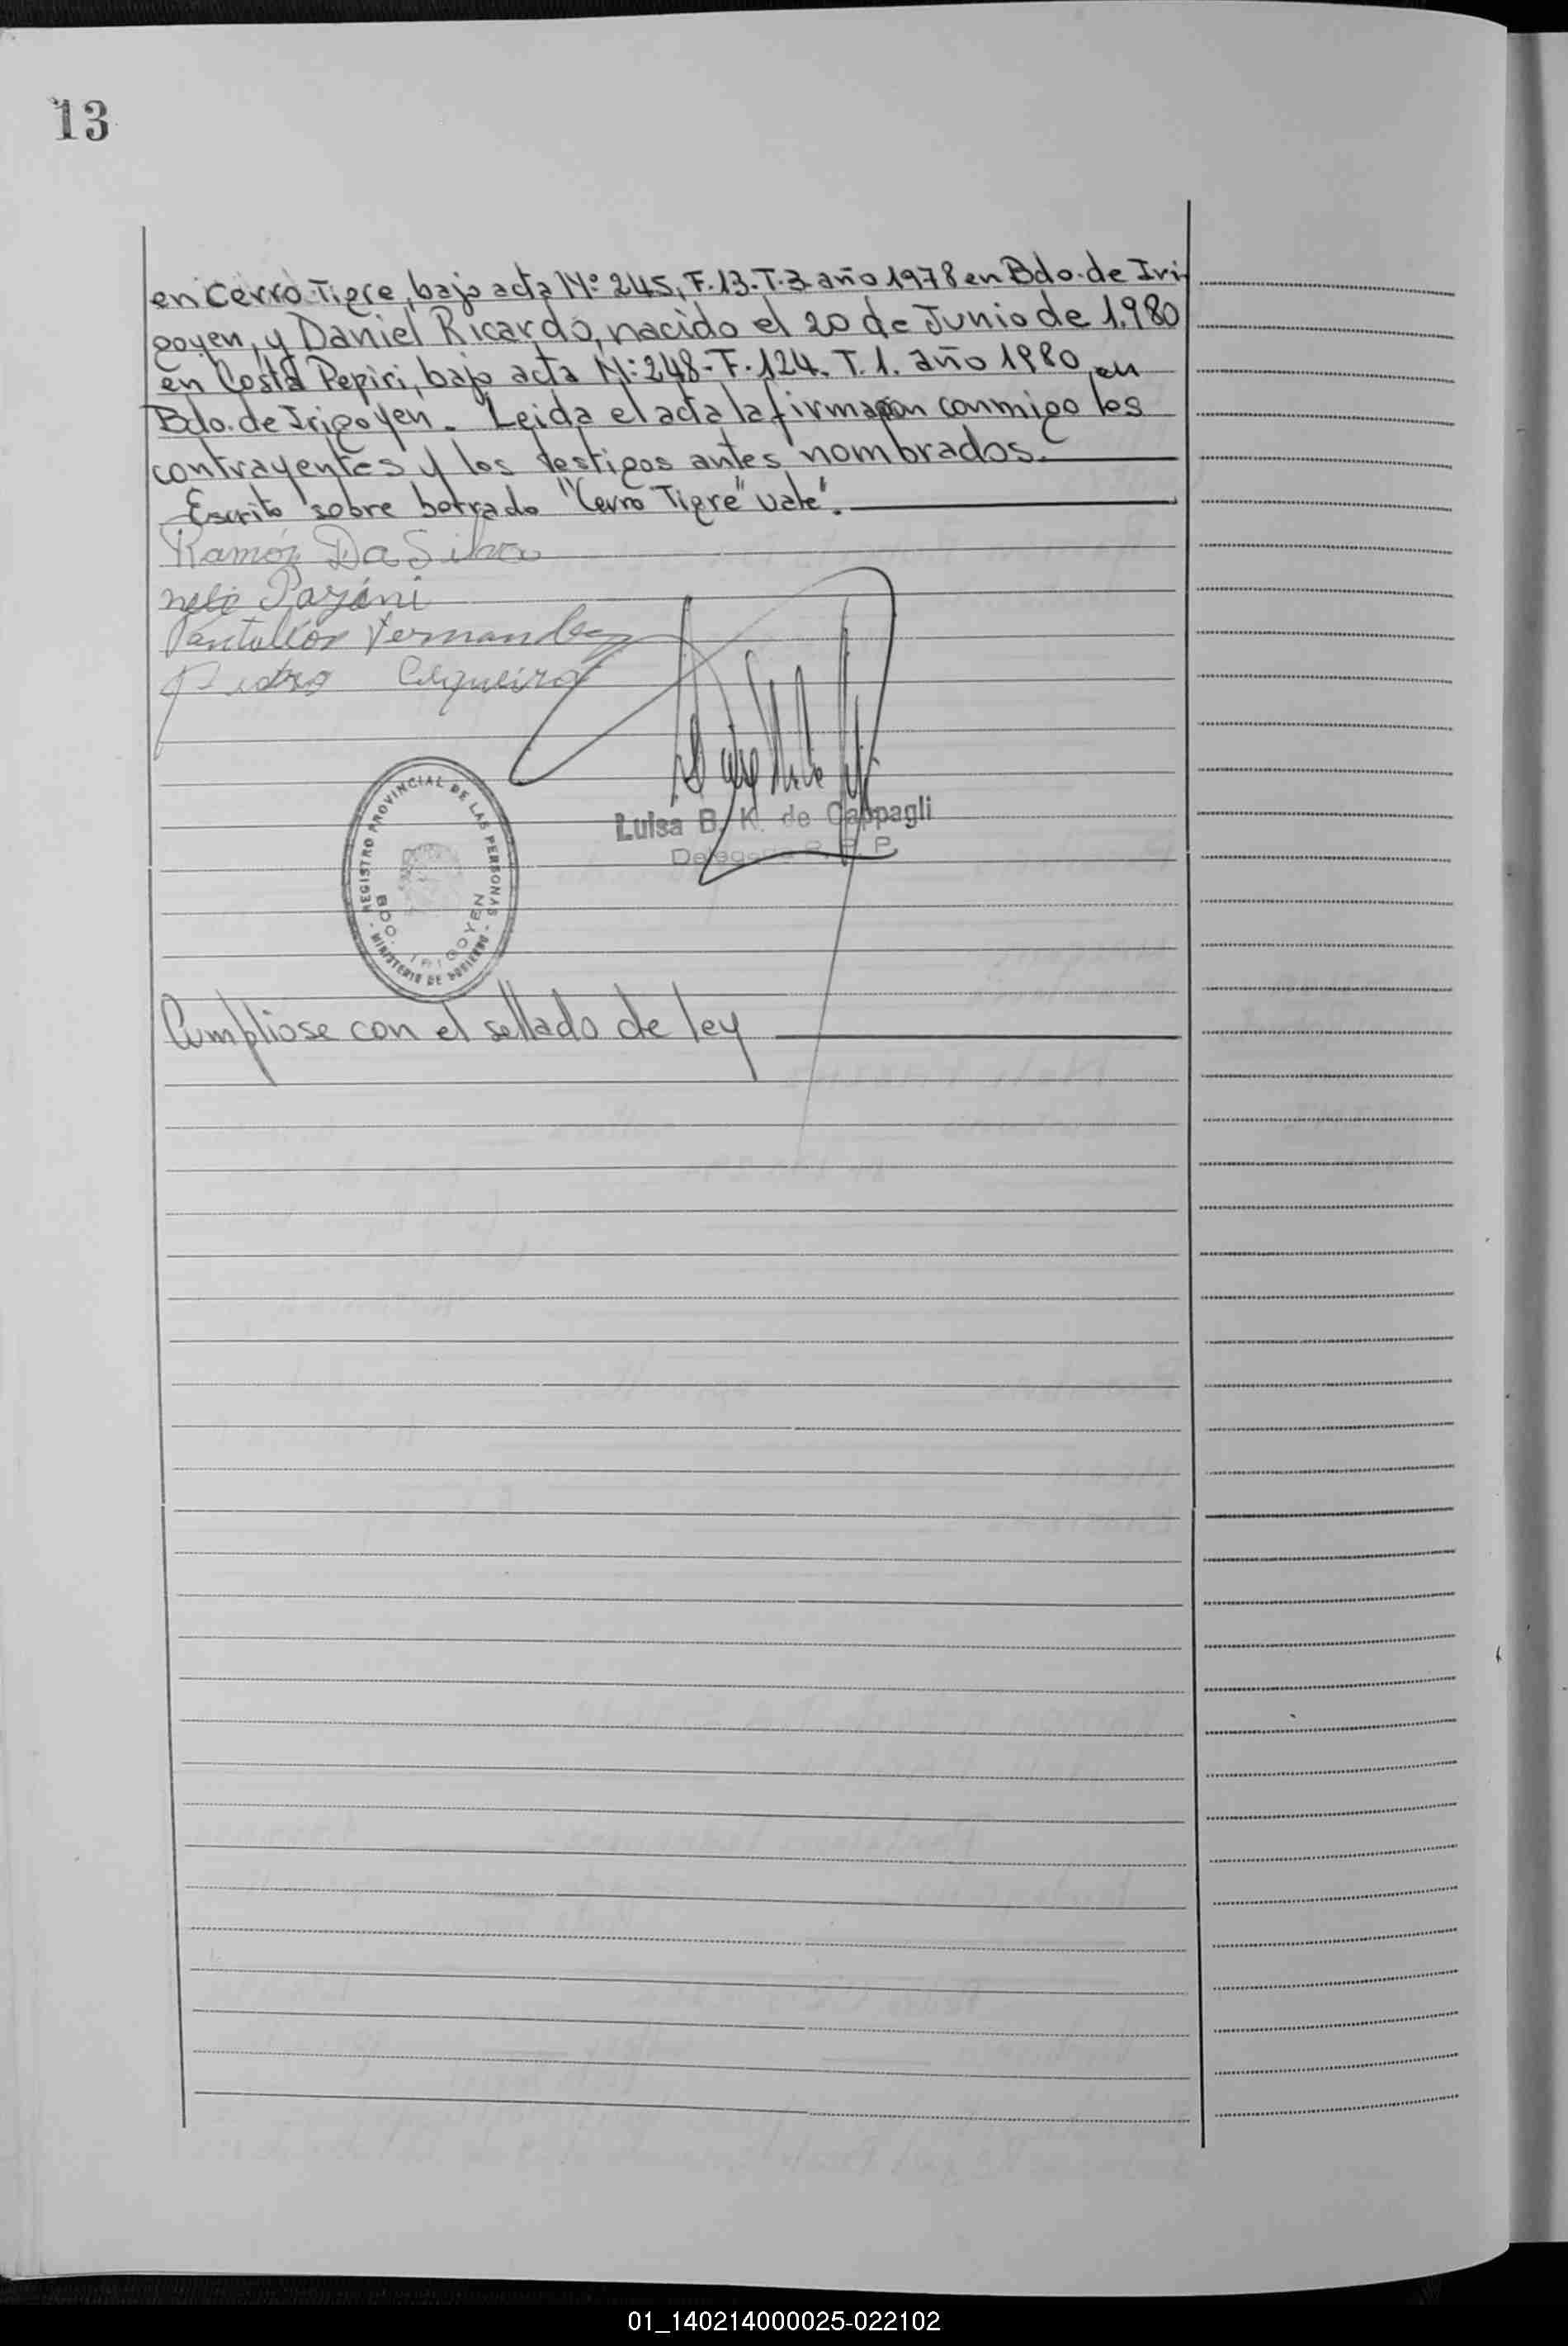 13
en Cerro Tigre, bajo acta Nº 245, F.13.T.3 año 1978 en Bdo. de Iri
goyen, y Daniel Ricardo, nacido el 20 de Junio de 1.980
en Costa Pepiri, bajo acta Nº 248-F.124. T.1. año 1980 en
Bdo. de Irigoyen. Leida el acta la firmaron conmigo los
contrayentes y los testigos antes nombrados.
Escrito sobre borrado "Cerro Tigre" vale.
Ramón Da Silva
Pantalión Fernandez
Pedro Cerqueira
Luisa B. K. de Cappagli
REGISTRO PROVINCIAL DE LAS PERSONAS
BDO. IRIGOYEN
- MINISTERIO DE GOBIERNO -
Cumpliose con el sellado de ley
01_140214000025-022102